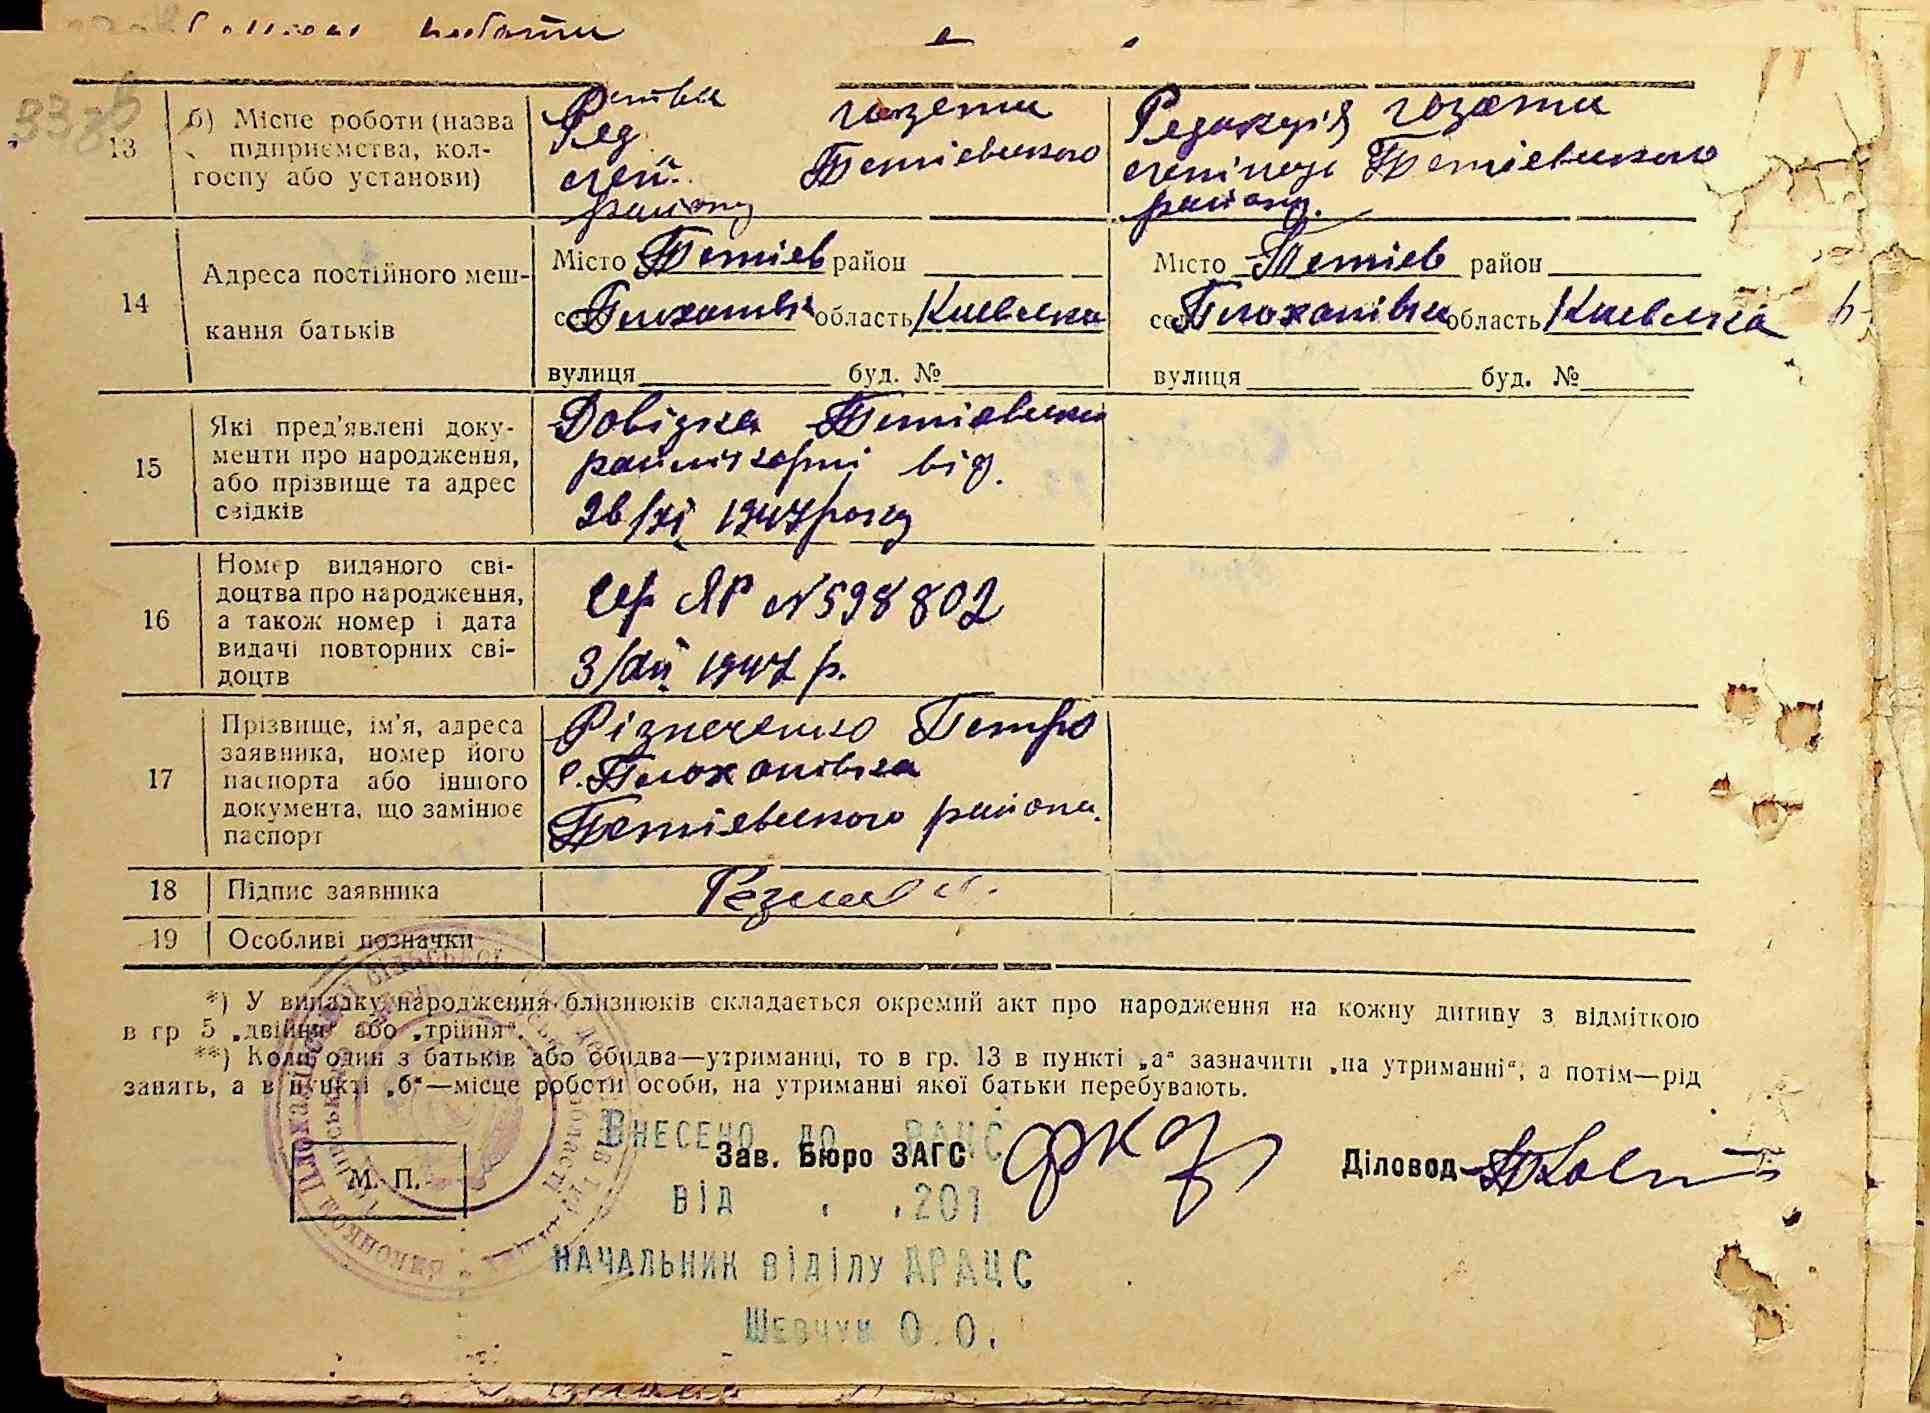 роботи
13
б) Місце роботи (назва
підприємства, кол-
госпу або установи)
Ред. газети
Тетіевського
району
Редакція газети
Тетіевського
району.
14
Адреса постійного меш-
кання батьків
Місто Тетіев район
село Плоханівка область Киевська
вулиця буд. №
Місто Тетіев район
село Плоханівка область Киевська
вулиця буд. №
15
Які пред'явлені доку-
менти про народження,
або прізвище та адрес
свідків
Довідка Тетіевськи
райлікарні від.
26/XI 1947 року
16
Номер виданого сві-
доцтва про народження,
а також номер і дата
видачі повторних сві-
доцтв
Сер ЯР N598802
3/XII 1947 р.
17
Прізвище, ім'я, адреса
заявника, номер його
паспорта або іншого
документа, що замінює
паспорт
Різниченко Петро
с. Плоханівка
Тетіевського района.
18
Підпис заявника
19
Особливі позначки
*) У випадку народження близнюків складається окремий акт про народження на кожну дитину з відміткою
в гр 5 „двійня“ або „трійня“.
**) Коли один з батьків або обидва—утриманці, то в гр. 13 в пункті „а“ зазначити „на утриманні“, а потім—рід
занять, а в пункті „б“—місце роботи особи, на утриманні якої батьки перебувають.
Внесено до РАЦС
Зав. Бюро ЗАГС
Діловод
М. П.
від . .201
Начальник відділу ДРАЦС
Шевчук О.О.